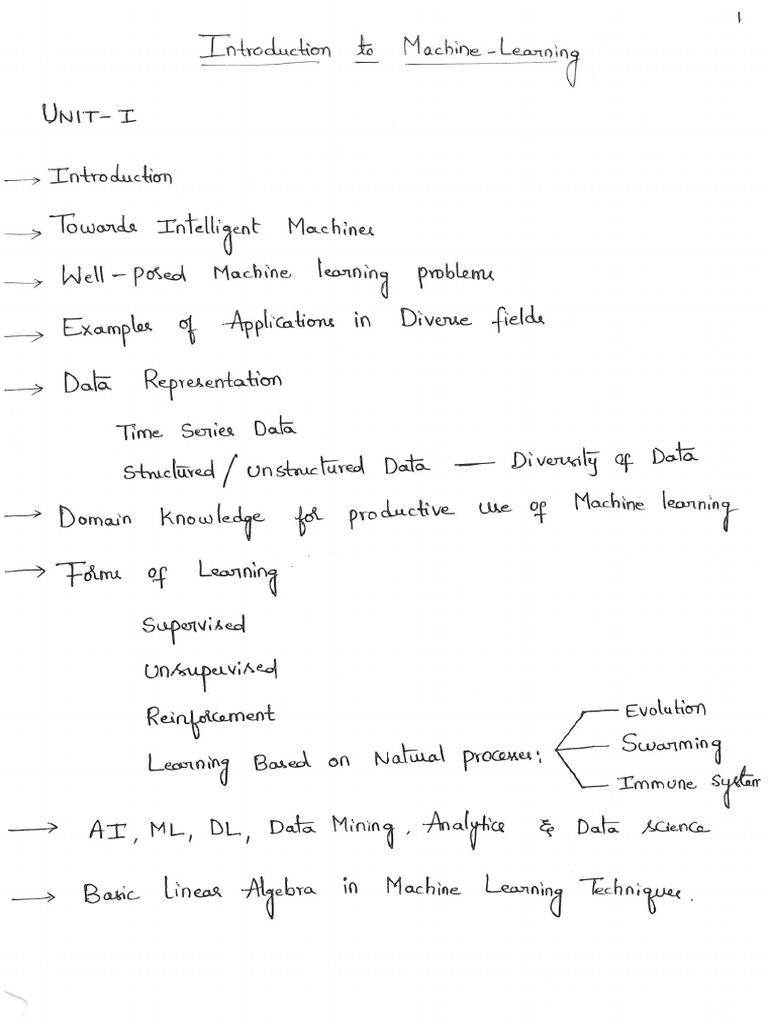 1
Introduction to Machine-Learning
UNIT-I
→ Introduction
→ Towards Intelligent Machines
→ Well-posed Machine learning problems
→ Examples of Applications in Diverse fields
→ Data Representation
Time Series Data
Structured / Unstructured Data — Diversity of Data
→ Domain Knowledge for productive use of Machine learning
→ Forms of Learning
Supervised
Unsupervised
Reinforcement
Learning Based on Natural processes:
Evolution
Swarming
Immune System
→ AI, ML, DL, Data Mining, Analytics & Data science
→ Basic Linear Algebra in Machine Learning Techniques.